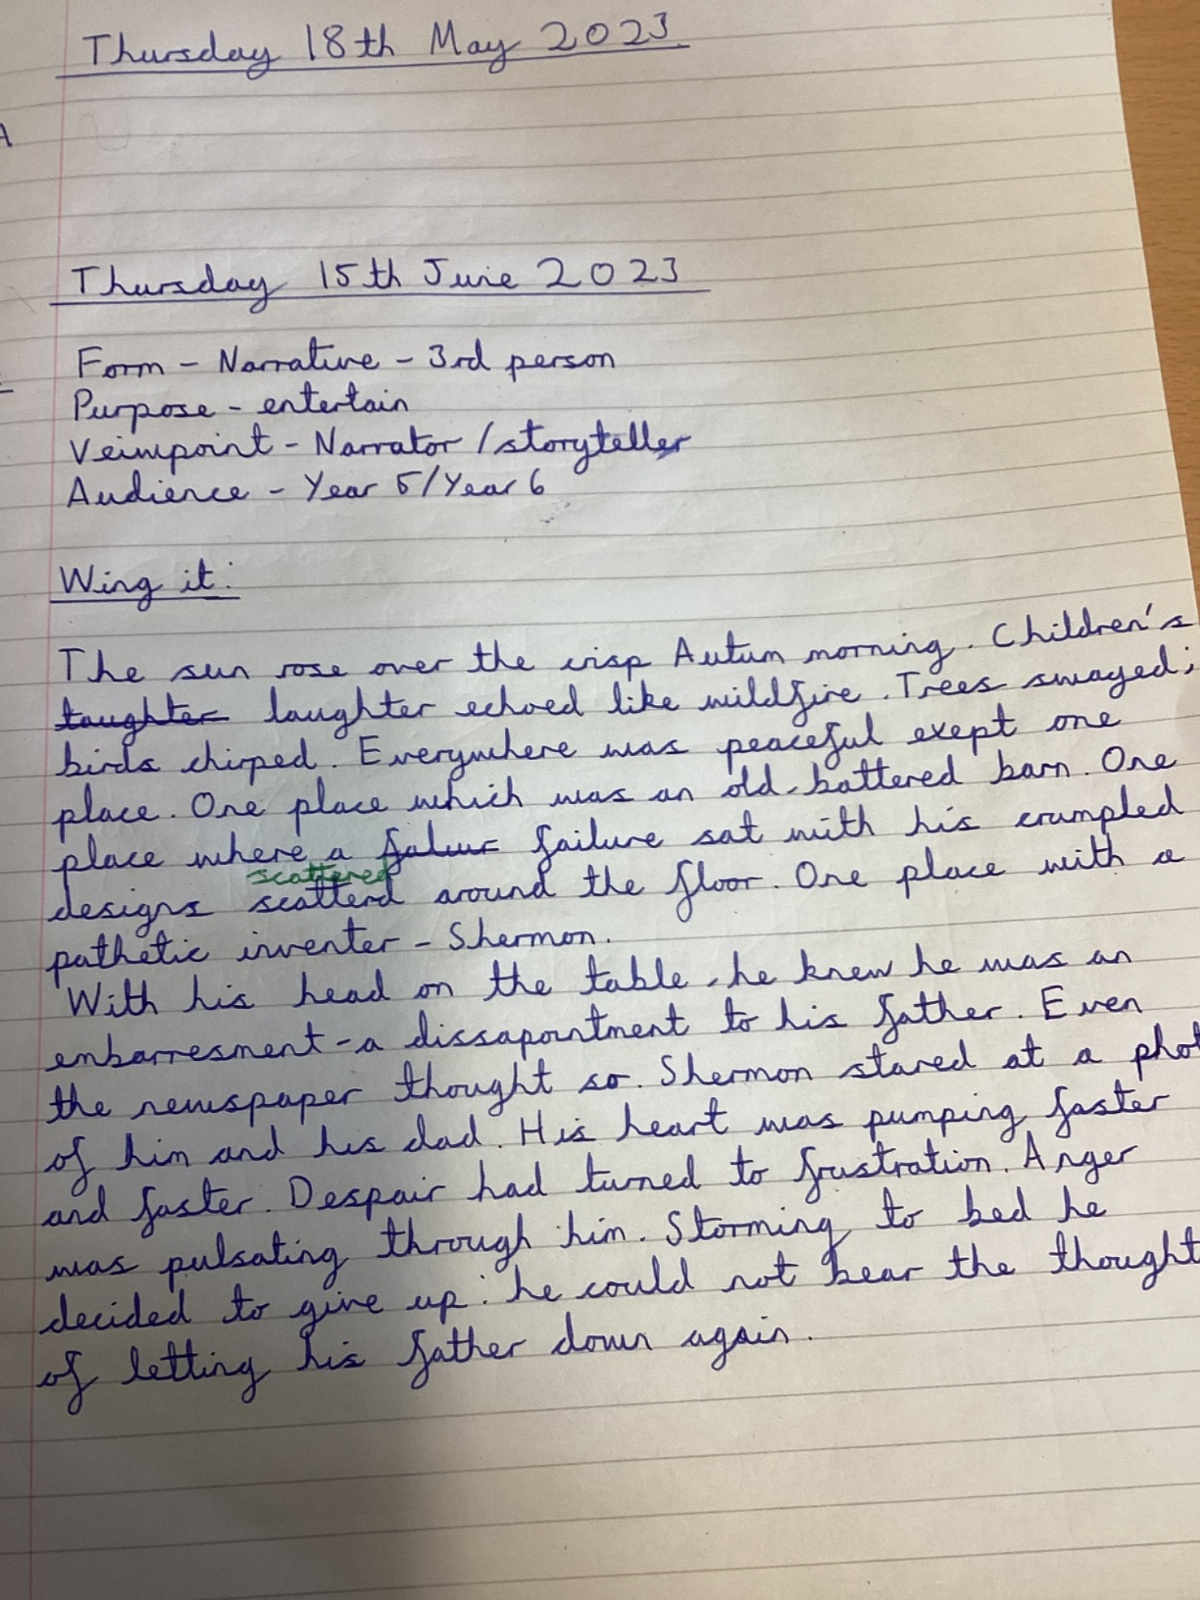 Thursday 18th May 2023
Thursday 15th June 2023
Form - Narrative - 3rd person
Purpose - entertain
Veiwpoint - Narrator / storyteller
Audience - Year 5/Year 6
Wing it:
The sun rose over the crisp Autum morning. Children's
taughter laughter echoed like wildfire. Trees swayed;
birds chirped. Everywhere was peaceful exept one
place. One place which was an old, battered barn. One
place where a failure sat with his crumpled
scattered
designs scatterd around the floor. One place with a
pathetic inventer - Shermon.
With his head on the table, he knew he was an
embarresment - a dissapointment to his father. Even
the newspaper thought so. Shermon stared at a phot
of him and his dad. His heart was pumping faster
and faster. Despair had turned to frustration. Anger
was pulsating through him. Storming to bed he
decided to give up: he could not bear the thought
of letting his father down again.